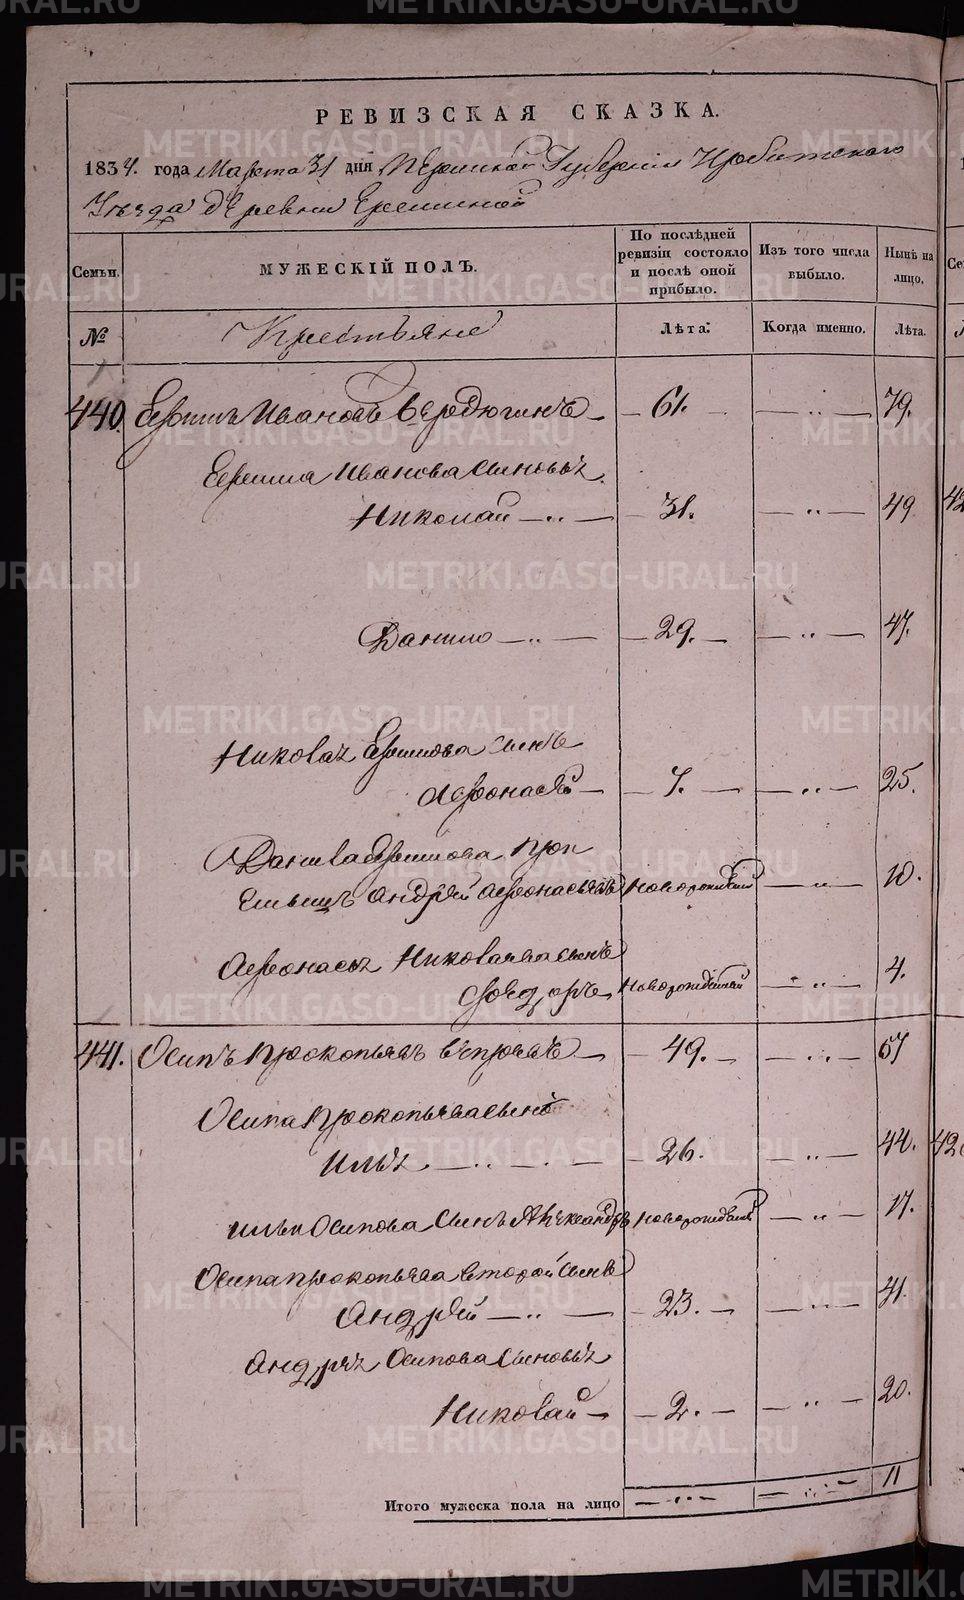 РЕВИЗСКАЯ СКАЗКА.
1834. года Марта 31 дня Пермской Губернiи Ирбитскаго
Уезда деревни Ереминой
Семьи. МУЖЕСКIЙ ПОЛЪ. По послѣдней ревизiи состояло и послѣ оной прибыло. Изъ того числа выбыло. Нынѣ на лицо.
№ Крестьяне Лѣта. Когда именно. Лѣта.
440. Ефимъ Ивановъ Вердюгинъ — 61. — — „ — 79.
Ефима Иванова сыновья
Николай — „ — — 31. — „ — 49
Данило — „ — — 29. — — „ — 47.
Николая Ефимова сынъ
Афонасей — — 7. — — „ — 25.
Данила Ефимова прiи
емышъ Андрей Афонасьевъ новорожденный — „ — 10.
Афонасья Николаева сынъ
Федоръ новорожденный — „ — 4.
441. Осипъ Прокопьевъ Вепревъ — — 49. — — „ — 67
Осипа Прокопьева сынъ
Илья — „ — — 26. — „ — 44.
Ильи Осипова сынъ Александръ новорожденный — „ — 17.
Осипа Прокопьева второй сынъ
Андрей — „ — — 23. — — „ — 41.
Андрея Осипова сыновья
Николай — — 2. — — „ — 20.
Итого мужеска пола на лицо — „ — — „ — 11
METRIKI.GASO-URAL.RU